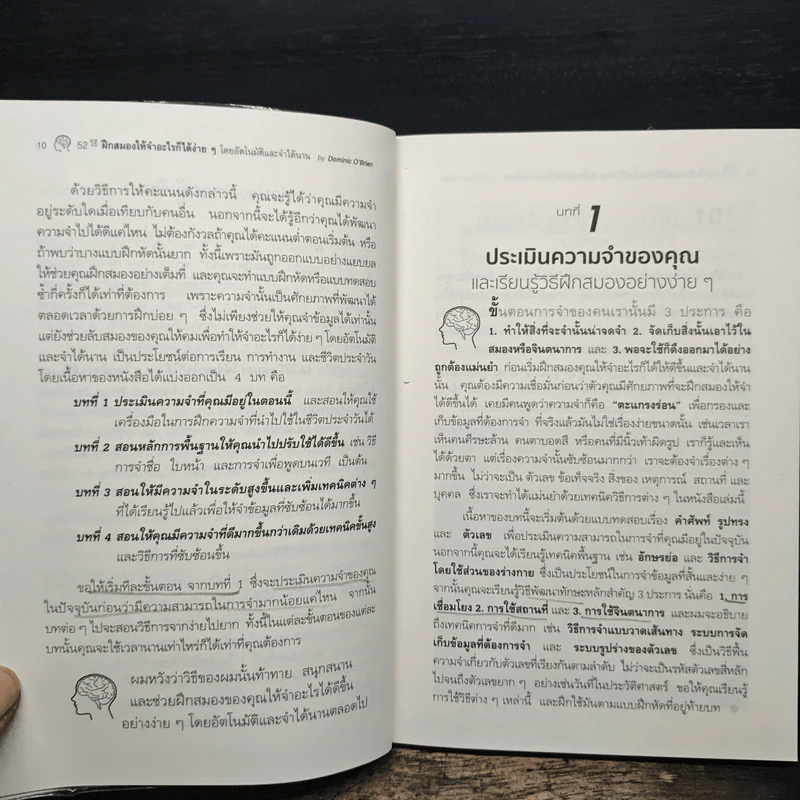 10 52 วิธี ฝึกสมองให้จำอะไรก็ได้ง่าย ๆ โดยอัตโนมัติและจำได้นาน by Dominic O'Brien
ด้วยวิธีการให้คะแนนดังกล่าวนี้ คุณจะรู้ได้ว่าคุณมีความจำ
อยู่ระดับใดเมื่อเทียบกับคนอื่น นอกจากนี้จะได้รู้อีกว่าคุณได้พัฒนา
ความจำไปได้ดีแค่ไหน ไม่ต้องกังวลถ้าคุณได้คะแนนต่ำตอนเริ่มต้น หรือ
ถ้าพบว่าบางแบบฝึกหัดนั้นยาก ทั้งนี้เพราะมันถูกออกแบบอย่างแยบยล
ให้ช่วยคุณฝึกสมองอย่างเต็มที่ และคุณจะทำแบบฝึกหัดหรือแบบทดสอบ
ซ้ำกี่ครั้งก็ได้เท่าที่ต้องการ เพราะความจำนั้นเป็นศักยภาพที่พัฒนาได้
ตลอดเวลาด้วยการฝึกบ่อย ๆ ซึ่งไม่เพียงช่วยให้คุณจำข้อมูลได้เท่านั้น
แต่ยังช่วยลับสมองของคุณให้คมเพื่อทำให้จำอะไรก็ได้ง่าย ๆ โดยอัตโนมัติ
และจำได้นาน เป็นประโยชน์ต่อการเรียน การทำงาน และชีวิตประจำวัน
โดยเนื้อหาของหนังสือได้แบ่งออกเป็น 4 บท คือ
บทที่ 1 ประเมินความจำที่คุณมีอยู่ในตอนนี้ และสอนให้คุณใช้
เครื่องมือในการฝึกความจำที่นำไปใช้ในชีวิตประจำวันได้
บทที่ 2 สอนหลักการพื้นฐานให้คุณนำไปปรับใช้ได้ดีขึ้น เช่น วิธี
การจำชื่อ ใบหน้า และการจำเพื่อพูดบนเวที เป็นต้น
บทที่ 3 สอนให้มีความจำในระดับสูงขึ้นและเพิ่มเทคนิคต่าง ๆ
ที่ได้เรียนรู้ไปแล้วเพื่อให้จำข้อมูลที่ซับซ้อนได้มากขึ้น
บทที่ 4 สอนให้คุณมีความจำที่ดีมากขึ้นกว่าเดิมด้วยเทคนิคขั้นสูง
และวิธีการที่ซับซ้อนขึ้น
ขอให้เริ่มทีละขั้นตอน จากบทที่ 1 ซึ่งจะประเมินความจำของคุณ
ในปัจจุบันก่อนว่ามีความสามารถในการจำมากน้อยแค่ไหน จากนั้น
บทต่อ ๆ ไปจะสอนวิธีการจากง่ายไปยาก ทั้งนี้ในแต่ละขั้นตอนของแต่ละ
บทนั้นคุณจะใช้เวลานานเท่าไหร่ก็ได้เท่าที่คุณต้องการ
ผมหวังว่าวิธีของผมนั้นท้าทาย สนุกสนาน
และช่วยฝึกสมองของคุณให้จำอะไรได้ดีขึ้น
อย่างง่าย ๆ โดยอัตโนมัติและจำได้นานตลอดไป
บทที่ 1
ประเมินความจำของคุณ
และเรียนรู้วิธีฝึกสมองอย่างง่าย ๆ
ขั้นตอนการจำของคนเรานั้นมี 3 ประการ คือ
1. ทำให้สิ่งที่จะจำนั้นน่าจดจำ 2. จัดเก็บสิ่งนั้นเอาไว้ใน
สมองหรือจินตนาการ และ 3. พอจะใช้ก็ดึงออกมาได้อย่าง
ถูกต้องแม่นยำ ก่อนเริ่มฝึกสมองคุณให้จำอะไรก็ได้ให้ดีขึ้นและจำได้นาน
นั้น คุณต้องมีความเชื่อมั่นก่อนว่าตัวคุณมีศักยภาพที่จะฝึกสมองให้จำ
ได้ดีขึ้นได้ เคยมีคนพูดว่าความจำก็คือ “ตะแกรงร่อน” เพื่อกรองและ
เก็บข้อมูลที่ต้องการจำ ที่จริงแล้วมันไม่ใช่เรื่องง่ายขนาดนั้น เช่นเวลาเรา
เห็นคนศีรษะล้าน คนตาบอดสี หรือคนที่มีนิ้วเท้าผิดรูป เราก็รู้และเห็น
ได้ด้วยตา แต่เรื่องความจำนั้นซับซ้อนมากกว่า เราจะต้องจำเรื่องต่าง ๆ
มากขึ้น ไม่ว่าจะเป็น ตัวเลข ข้อเท็จจริง สิ่งของ เหตุการณ์ สถานที่ และ
บุคคล ซึ่งเราจะทำได้แม่นยำด้วยเทคนิควิธีการต่าง ๆ ในหนังสือเล่มนี้
เนื้อหาของบทนี้จะเริ่มต้นด้วยแบบทดสอบเรื่อง คำศัพท์ รูปทรง
และ ตัวเลข เพื่อประเมินความสามารถในการจำที่คุณมีอยู่ในปัจจุบัน
นอกจากนี้คุณจะได้เรียนรู้เทคนิคพื้นฐาน เช่น อักษรย่อ และ วิธีการจำ
โดยใช้ส่วนของร่างกาย ซึ่งเป็นประโยชน์ในการจำข้อมูลที่สั้นและง่าย ๆ
จากนั้นคุณจะเรียนรู้วิธีพัฒนาทักษะหลักสำคัญ 3 ประการ นั่นคือ 1. การ
เชื่อมโยง 2. การใช้สถานที่ และ 3. การใช้จินตนาการ และผมจะอธิบาย
ถึงเทคนิคการจำที่ดีมาก เช่น วิธีการจำแบบวาดเส้นทาง ระบบการจัด
เก็บข้อมูลที่ต้องการจำ และ ระบบรูปร่างของตัวเลข ซึ่งเป็นวิธีฟื้น
ความจำเกี่ยวกับตัวเลขที่เรียงกันตามลำดับ ไม่ว่าจะเป็นรหัสตัวเลขสี่หลัก
ไปจนถึงตัวเลขยาก ๆ อย่างเช่นวันที่ในประวัติศาสตร์ ขอให้คุณเรียนรู้
การใช้วิธีต่าง ๆ เหล่านี้ และฝึกใช้มันตามแบบฝึกหัดที่อยู่ท้ายบท